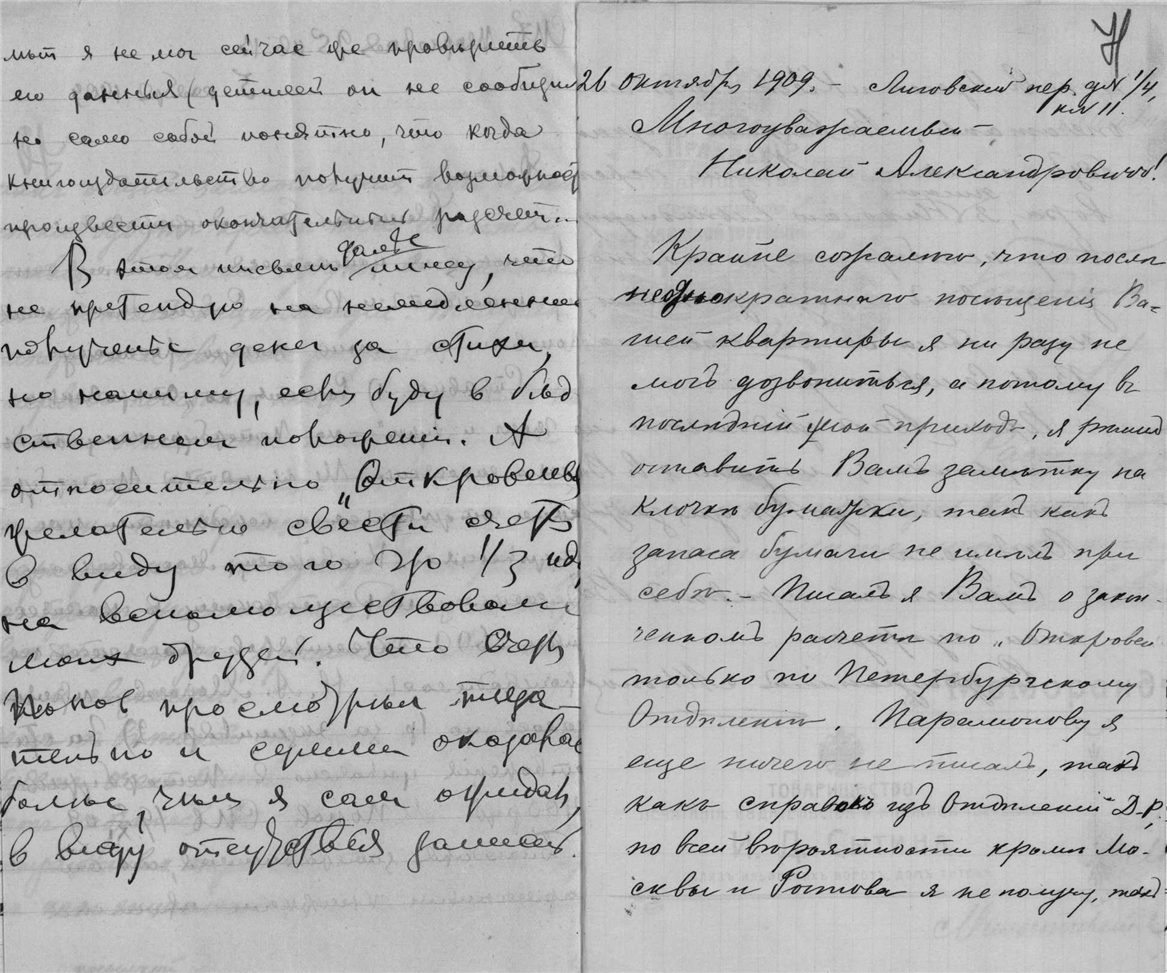 мът я не мог сейчас же проверить
его данныя (деталей он не сообщил
но само собой понятно, что когда
книгоиздательство получит возможност
произвести окончательный разсчет.
В этом письме далее пишу, что
не претендую на немедленное
получение денег за стихи,
но напишу, если буду в бед
ственном положении. А
относительно „Откровения
желательно свести счеты
в виду того что 1/3 идет
на вспомоществование
моих друзей. Что Счет
Попов просмотрел тща
тельно и сумма оказалас
более, чем я сам ожидал,
в виду отсутствия записей.
Н
26 октября 1909. – Лиговский пер. д№ 1/4,
кв 11.
Многоуважаемый
Николай Александрович!
Крайне сожалею, что после
неоднократнаго посещенія Ва-
шей квартиры я ни разу не
могъ дозвониться, а потому въ
последній мой приходъ, я решил
оставить Вамъ заметку на
клочке бумажки, такъ какъ
запаса бумаги не имелъ при
себе. – Писалъ я Вамъ о закон-
ченномъ расчете по „Откровен
только по Петербургскому
Отделенію. Парамонову я
еще ничего не писалъ, такъ
какъ справокъ изъ Отделений Д-Р,
по всей вероятности кроме Мо-
сквы и Ростова я не получу, такъ